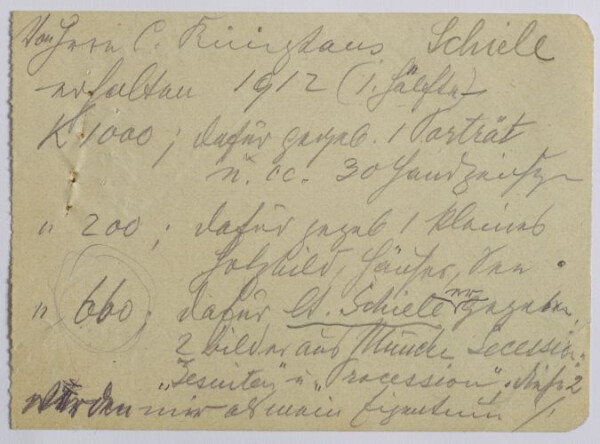 Von Herrn C. Reininghaus Schiele
erhalten 1912 (1. Hälfte)
K 1000; dafür gegeb. 1 Porträt
u. cc. 30 Handzeichg
" 200; dafür gegeb 1 kleines
Holzbild, Häuser,
" 660; dafür lt. Schiele mir gegeben
2 bilder aus Münche Secession
" u "Procession". Diese 2
werden mir als mein Eigentum